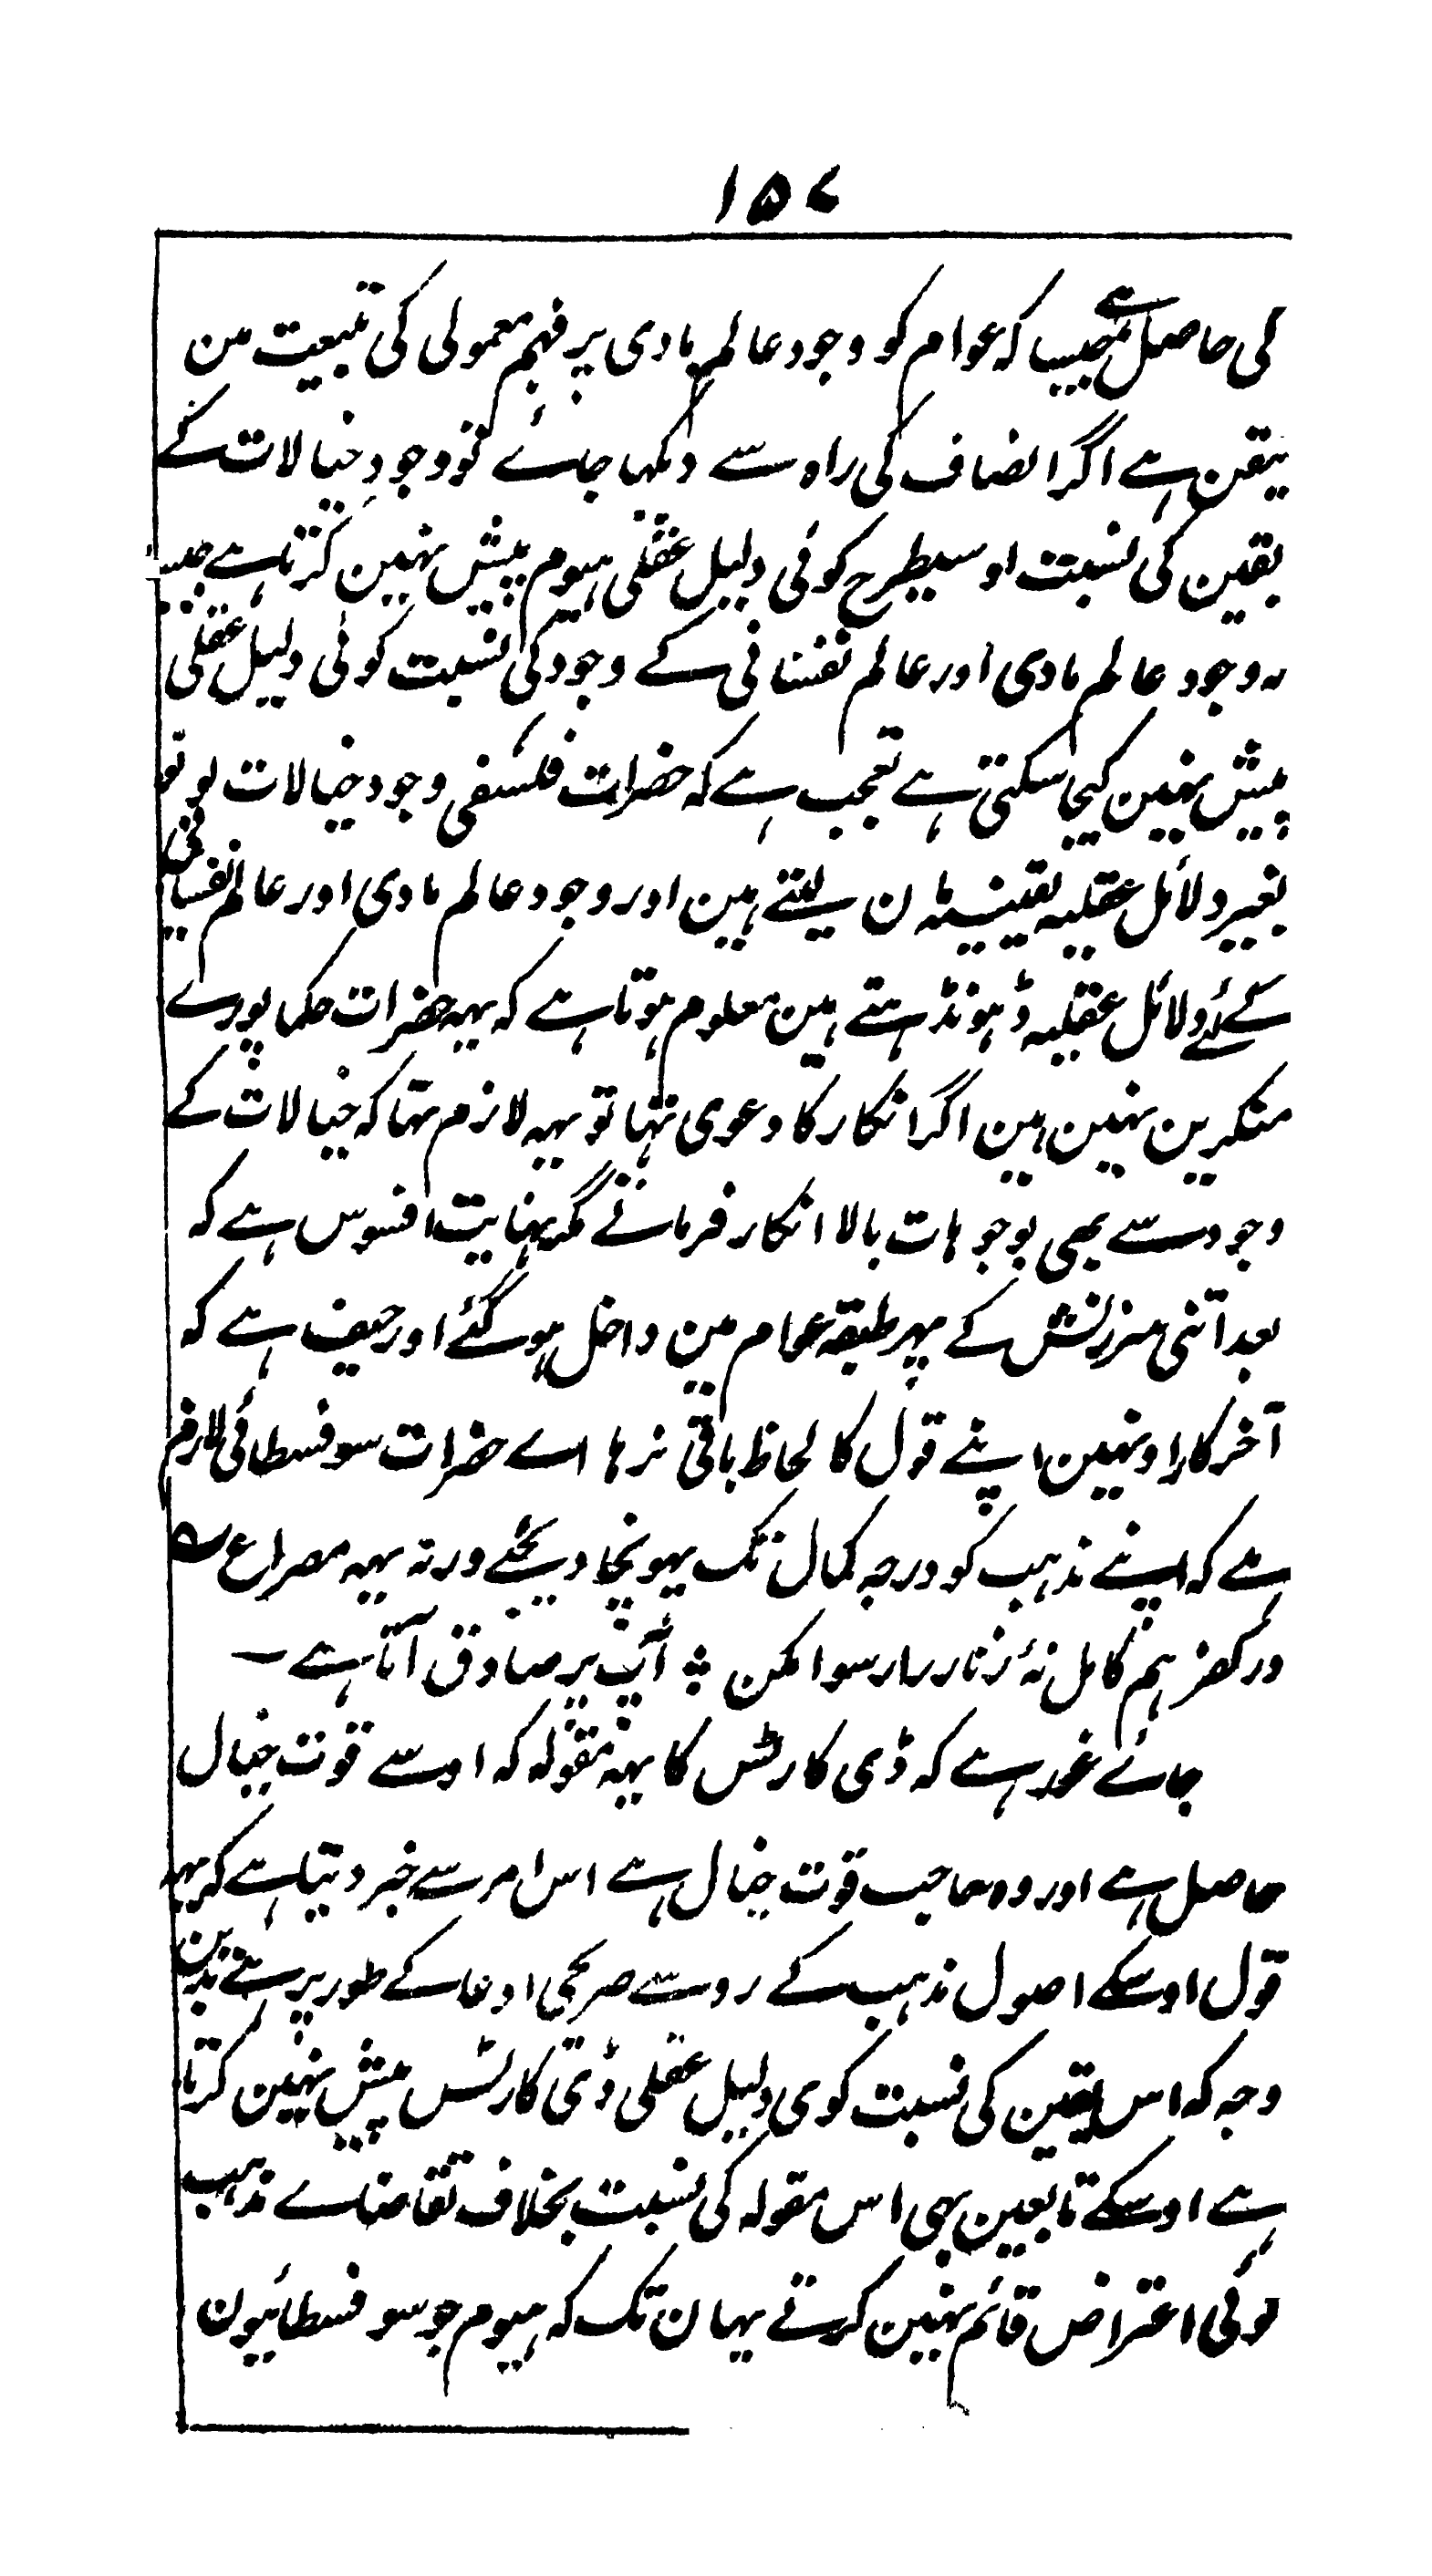 ۱۵۷
کی حاصل ہے جیسا کہ عوام کو وجود عالم مادی پر فہم معمولی کی تبعیت من
یقین ہے اگر انصاف کی راہ سے دکہا جاے تو وجود خیالات کے
یقین کی نسبت اوسیطرح کوئی دلیل عقلی ہیوم پیش نہین کرتا ہے جیسا
وجود عالم مادی اور عالم نفسانی کے وجود کی نسبت کوئی دلیل عقلی
پیش نہین کیجا سکتی ہے تعجب ہے کہ حضرات فلسفی وجود خیالات کو تو
بغیر دلائل عقلیہ یقینیہ مان لیتے ہین اور وجود عالم مادی اور عالم نفسانی
کے لئے دلائل عقلیہ ڈہونڈہتے ہین معلوم ہوتا ہے کہ یہہ حضرات حکما پورے
منکرین نہین ہین اگر انکار کا دعوی تہا تو یہہ لازم تہا کہ خیالات کے
وجود سے بھی بوجوہات بالا انکار فرماتے مگر نہایت افسوس ہے کہ
بعد اتنی سرزنش کے پہر طبقہ عوام مین داخل ہو گئے اور حیف ہے کہ
آخر کار اونہین اپنے قول کا لحاظ باقی نرہا اے حضرات سوفسطائی لازم
ہے کہ اپنے مذہب کو درجہ کمال تک پہونچا دیجئے ورنہ یہہ مصراع ؎
در کفر ہم کامل نۂ زنار را رسوا مکن ؞ آپ پر صادق آتا ہے ۔
جاے غور ہے کہ ڈی کارٹس کا یہہ مقولہ کہ اوسے قوت خیال
حاصل ہے اور وہ صاحب قوت خیال ہے اس امر سے خبر دیتا ہے کہ یہہ
قول اوسکے اصول مذہب کے رو سے صریحی ادعا کے طور پر ہے بدین
وجہ کہ اس یقین کی نسبت کوی دلیل عقلی ڈی کارٹس پیش نہین کرتا
ہے اوسکے تابعین بہی اس مقولہ کی نسبت بخلاف تقاضاے مذہب
کوئی اعتراض قائم نہین کرتے یہان تک کہ ہیوم جو سوفسطائیون